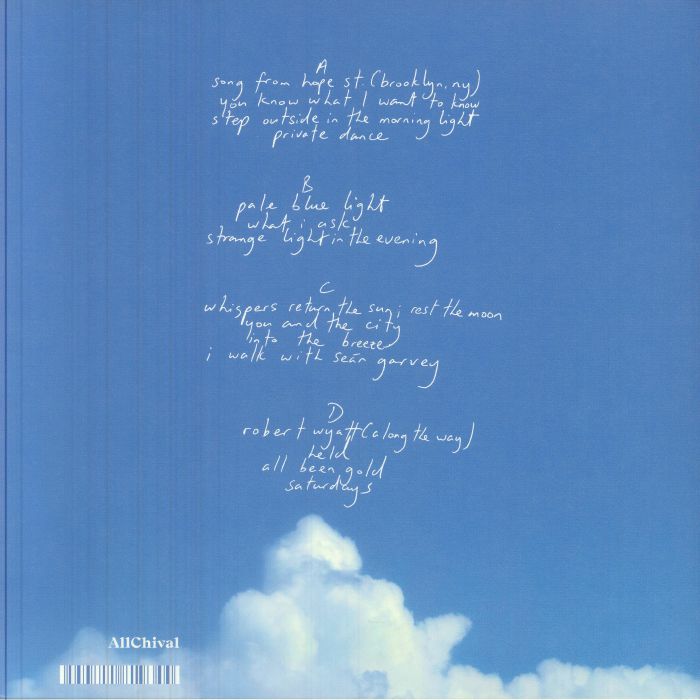 A
song from hope st. (brooklyn, ny)
you know what I want to know
step outside in the morning light
private dance
B
pale blue light
what i ask
strange light in the evening
C
whispers return the sun, i rest the moon
you and the city
into the breeze
i walk with seán garvey
D
robert wyatt (along the way)
held
all been gold
saturdays
AllChival